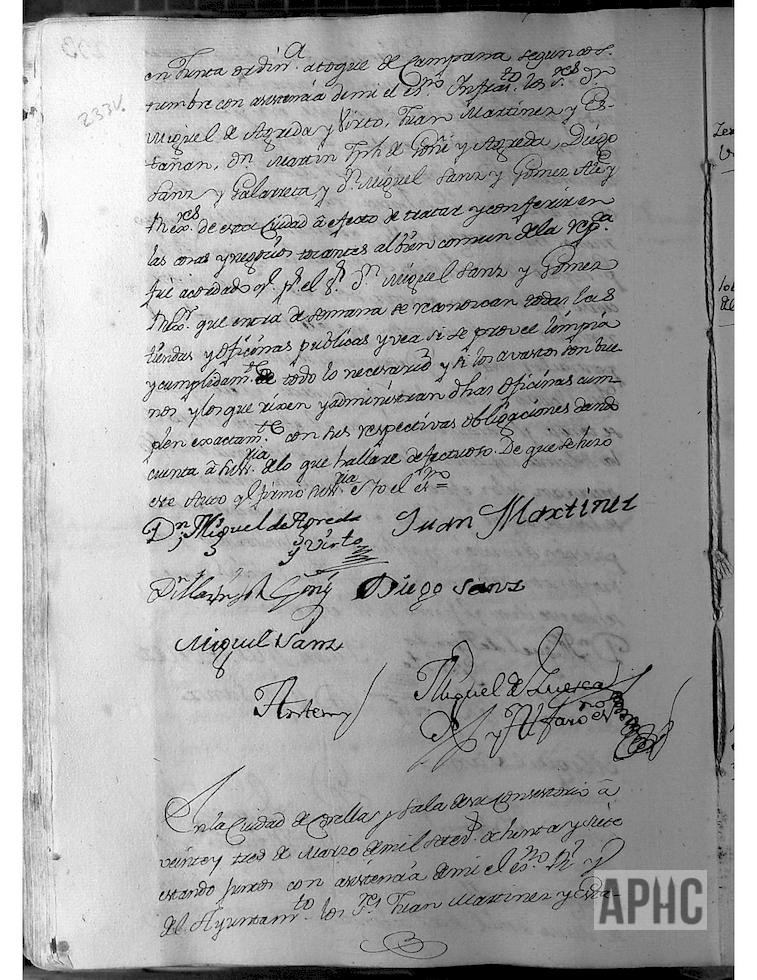 233v.
en Junta ordin.a a toque de Campana segun cos-
tumbre con asistencia de mi el es.no Infras.to los s.res D.n
Miguel de Agreda y Virto, Juan Martinez y Es-
tañan, D.n Martin Jph de Goñi y Agreda, Diego
Sanz y Galarreta, y D.n Miguel Sanz y Gomez Alc.e y
Rex.res de esta Ciudad a efecto de tratar y conferir en
las cosas y negocios tocantes al bien comun de la rep.ca
fue acordado q.e p.r el s.r D.n Miguel Sanz y Gomez
Rex.r que entra de semana se reconozcan todas las
tiendas y oficinas publicas y vea si se provee limpia
y cumplidam.te de todo lo necesario y si los avastos son bue-
nos y los que rixen y administran dhas Oficinas cum-
plen exactam.te con sus respectivas obligaciones dando
cuenta a sus.ria de lo que hallare defectuoso. De que se hizo
este Auto q.e firmo sus.ria e Yo el es.no
D.n Miguel de Agreda
y Virto
Juan Martinez
D.n Martin Jph Goñi
Diego Sanz
Miguel Sanz
Antemy
Miguel de Luesca
y Alfaro es.no
En la Ciudad de Corella y Sala de su Consistorio a
veinte y tres de Marzo de mil setez.s ochenta y siete
estando juntos con asistencia de mi el es.no R.l y
del Ayuntam.to los s.res Juan Martinez y Esta-
APHC